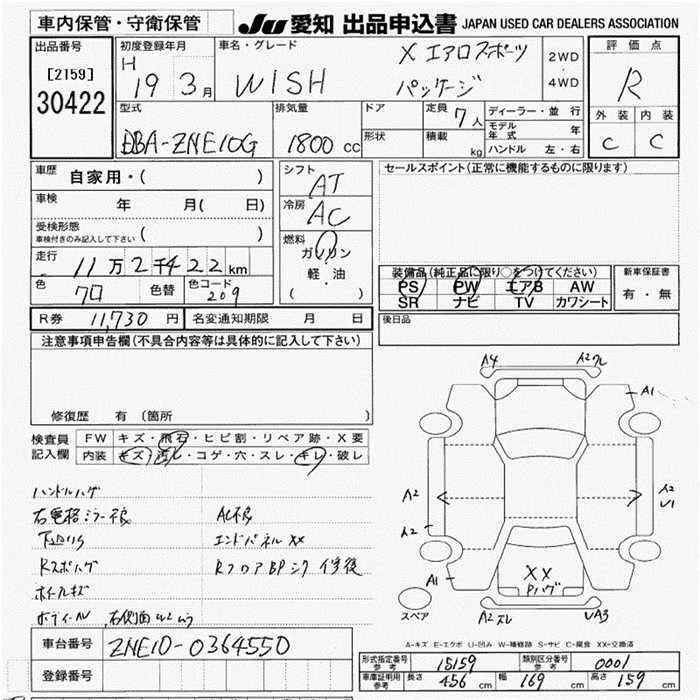 車内保管・守衛保管
JU 愛知 出品申込書 JAPAN USED CAR DEALERS ASSOCIATION
出品番号
[2159]
30422
初度登録年月
H 19 3月
車名・グレード
WISH X エアロスポーツ パッケージ
2WD
・
4WD
評価点
R
外装 内装
C C
型式
DBA-ZNE10G
排気量
1800 cc
ドア
形状
定員 7人
積載 kg
ディーラー・並行
モデル年式 年
ハンドル 左・右
車歴 自家用・( )
車検 年 月( 日)
受検形態
車検付きのみ記入して下さい ( )
走行 11万2千422km
色 クロ 色替 色コード 209
シフト
AT
冷房
AC
燃料
ガソリン
軽・油
( )
セールスポイント(正常に機能するものに限ります)
装備品(純正品に限り○をつけてください)
PS PW エアB AW
SR ナビ TV カワシート
新車保証書
有・無
R券 11,730 円 名変通知期限 月 日
後日品
注意事項申告欄(不具合内容等は具体的に記入して下さい)
修復歴 有 〔箇所 〕
検査員記入欄
FW キズ・飛石・ヒビ割・リペア跡・X要
内装 キズ・汚レ・コゲ・穴・スレ・キレ・破レ
ハンドルハゲ
右電格ミラー不良 AC不良
下廻りサビ エンドパネルXX
Rスポハゲ RフロアBPシワ 修後
ホイールキズ
ボディーNV 右側面W2有
A4 A2ワレ
A1
A2 A2
U1
A2
A1 XX
Pハゲ
スペア A2ズレ UA3
A-キズ E-エクボ U-凹み W-補修跡 S-サビ C-腐食 XX-交換済
車台番号 ZNE10-0364550
登録番号
形式指定番号 参考 15159 類別区分番号 参考 0001
車庫証明用 参考 長さ 456 cm 幅 169 cm 高さ 159 cm